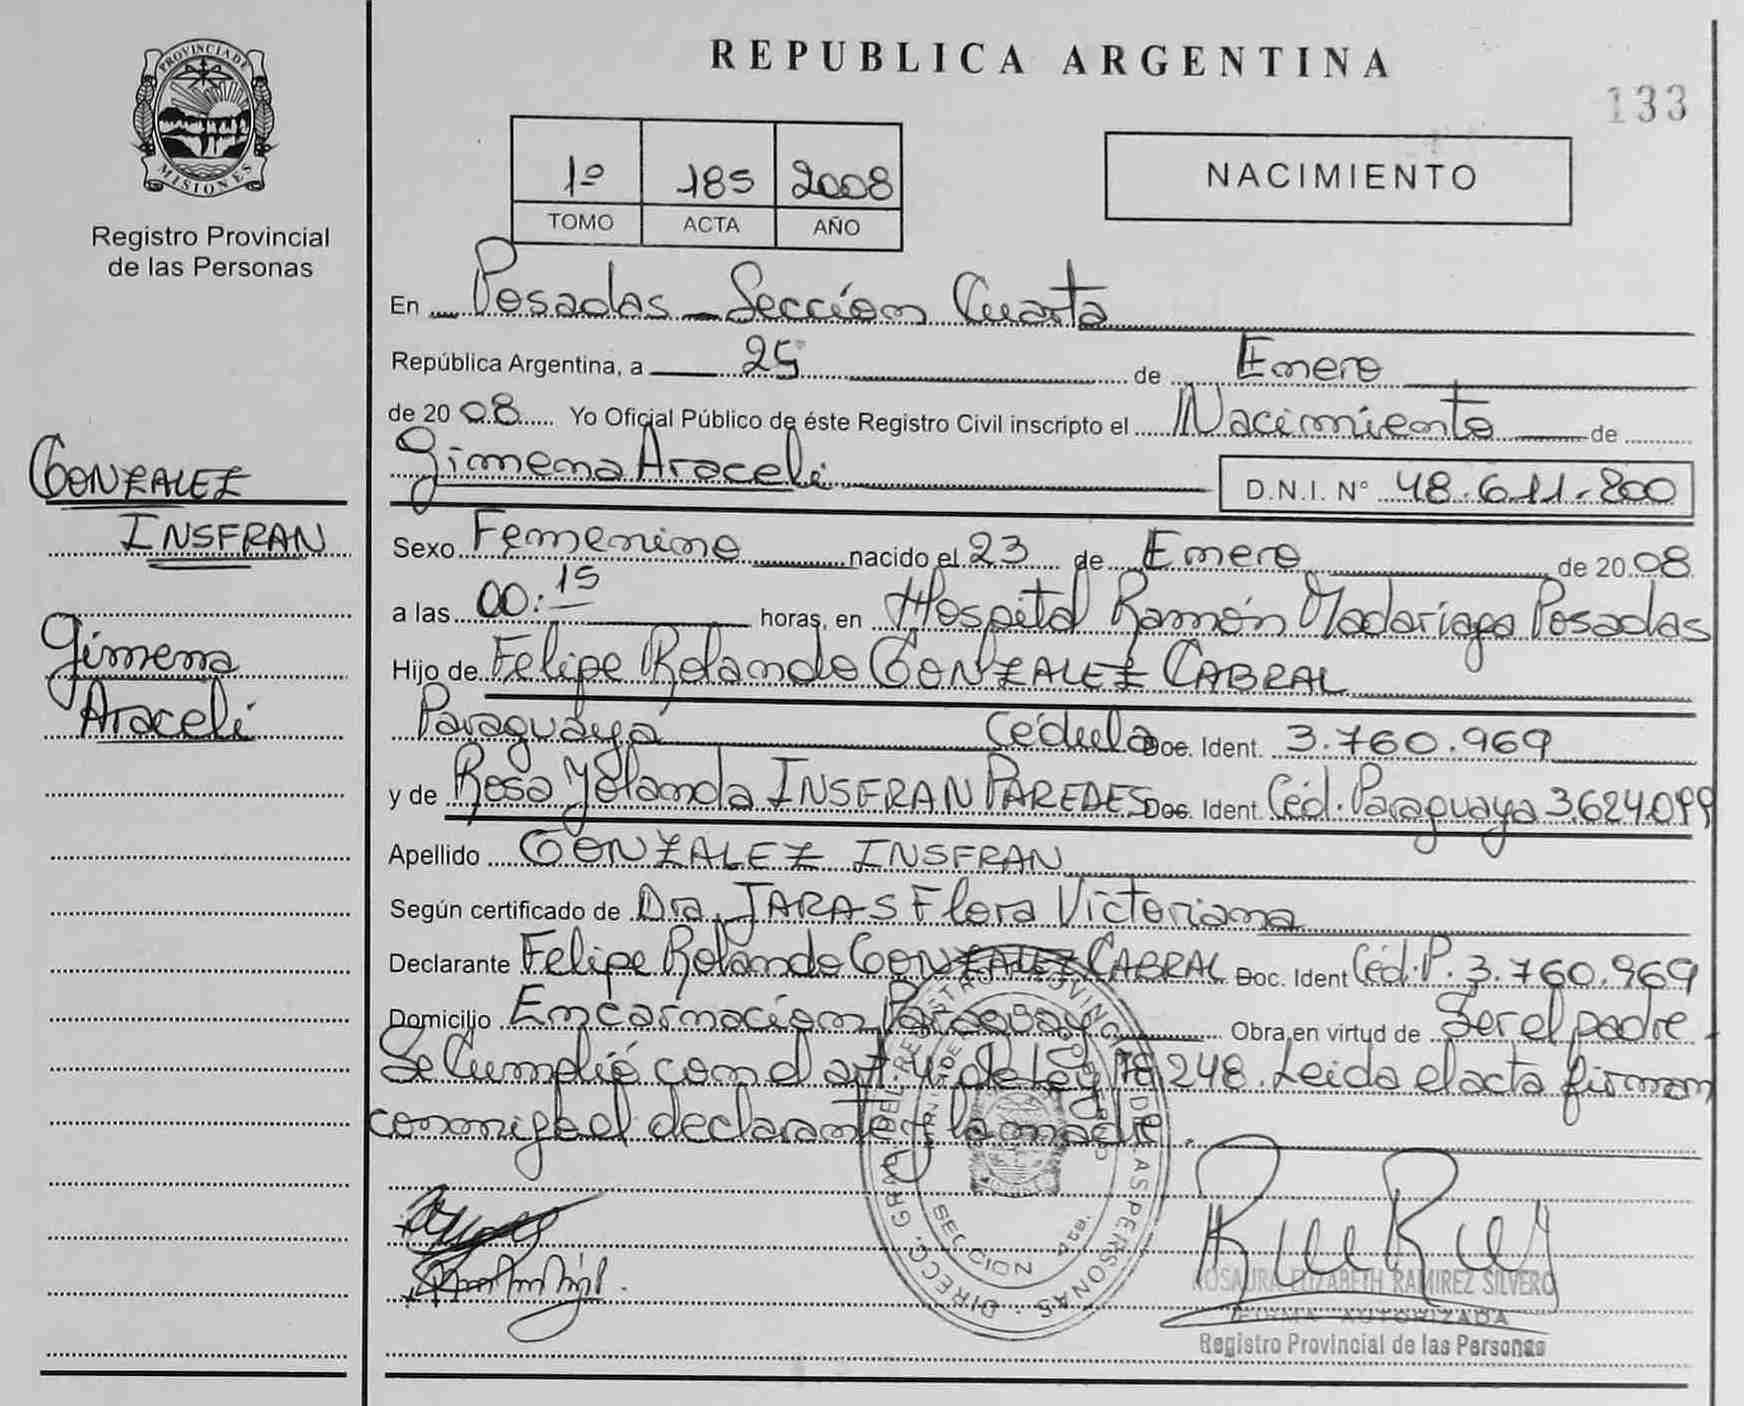 PROVINCIA DE
MISIONES
Registro Provincial
de las Personas
GONZALEZ
INSFRAN
Gimena
Araceli
REPUBLICA ARGENTINA
133
1º 185 2008
TOMO ACTA AÑO
NACIMIENTO
En Posadas - Sección Cuarta
República Argentina, a 25 de Enero
de 20 08 Yo Oficial Público de éste Registro Civil inscripto el Nacimiento de
Gimena Araceli D.N.I. Nº 48.611.800
Sexo Femenino nacido el 23 de Enero de 20 08
a las 00:15 horas, en Hospital Ramón Madariaga Posadas
Hijo de Felipe Rolando GONZALEZ CABRAL
Paraguaya Cédula Doc. Ident. 3.760.969
y de Rosa Yolanda INSFRAN PAREDES Doc. Ident. Céd. Paraguaya 3.624.099
Apellido GONZALEZ INSFRAN
Según certificado de Dra. JARAS Flora Victoriana
Declarante Felipe Rolando GONZALEZ CABRAL Doc. Ident Céd. P. 3.760.969
Domicilio Encarnación Paraguay Obra en virtud de Ser el padre.
Se Cumplió con el art 4 de Ley 18.248. Leida el acta firman
conmigo el declarante y la madre.
SECCION
ROSAURA ELIZABETH RAMIREZ SILVERO
FIRMA AUTORIZADA
Registro Provincial de las Personas